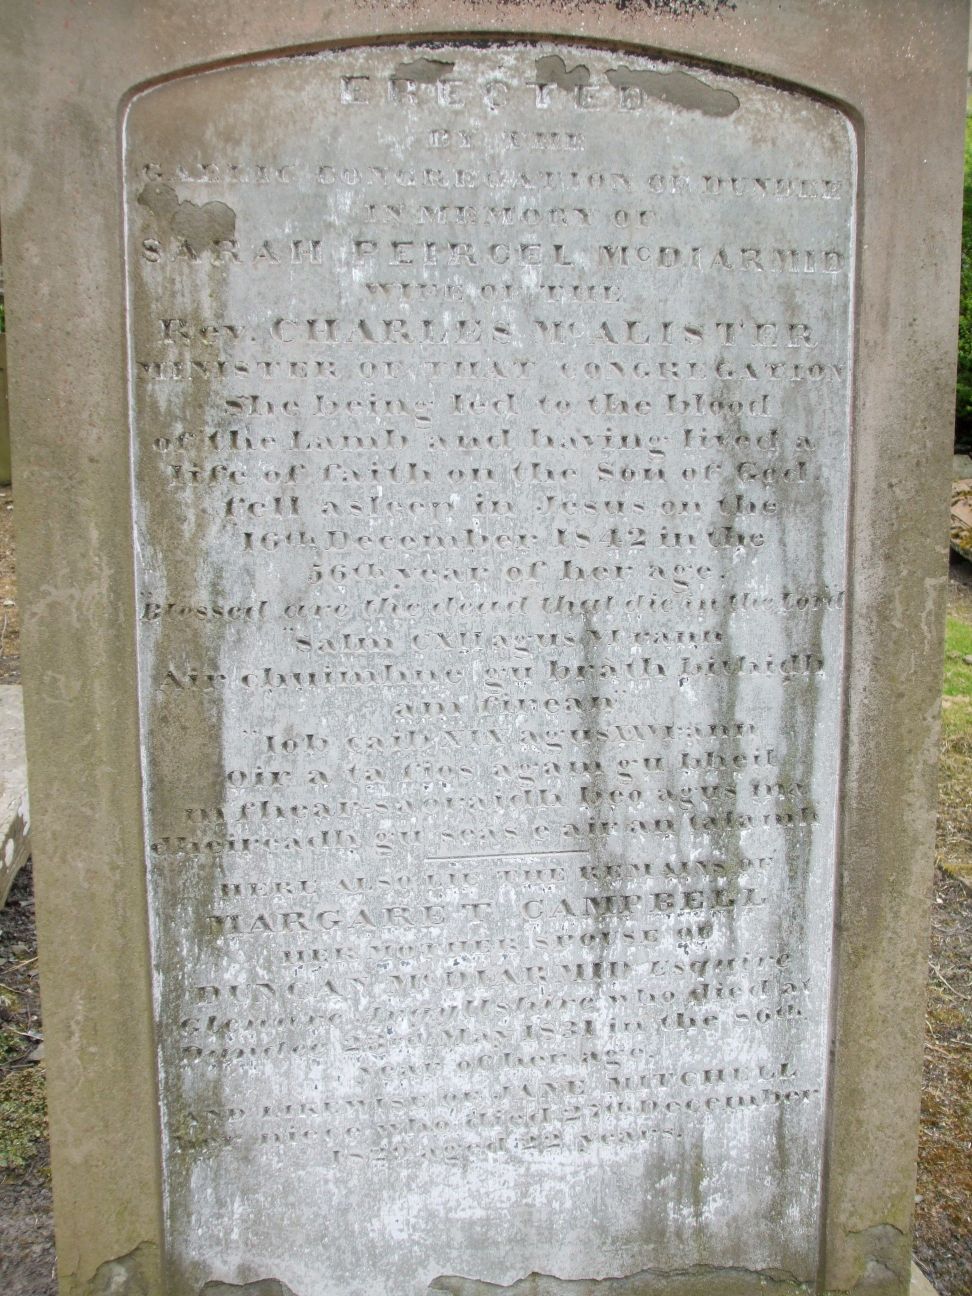 ERECTED
BY THE
GAELIC CONGREGATION OF DUNDEE
IN MEMORY OF
SARAH PEIRCEL McDIARMID
WIFE OF THE
Rev. CHARLES McALISTER
MINISTER OF THAT CONGREGATION
She being led to the blood
of the Lamb and having lived a
life of faith on the Son of God
fell asleep in Jesus on the
16th December 1842 in the
56th year of her age.
Blessed are the dead that die in the Lord
Salm CXII agus VI rann
Air chuimhne gu brath bithidh
am firean
Iob caib XIX agus XXV rann
Oir a ta fios agam gu bheil
m fhear-saoraidh beo agus na
dheireadh gu seas e air an talamh
HERE ALSO LIE THE REMAINS OF
MARGARET CAMPBELL
HER MOTHER SPOUSE OF
DUNCAN McDIARMID Esquire
Perthshire who died at
Dundee 23rd May 1831 in the 80th
year of her age.
AND LIKEWISE OF JANE MITCHELL
niece who died 27th December
1829 aged 22 years.